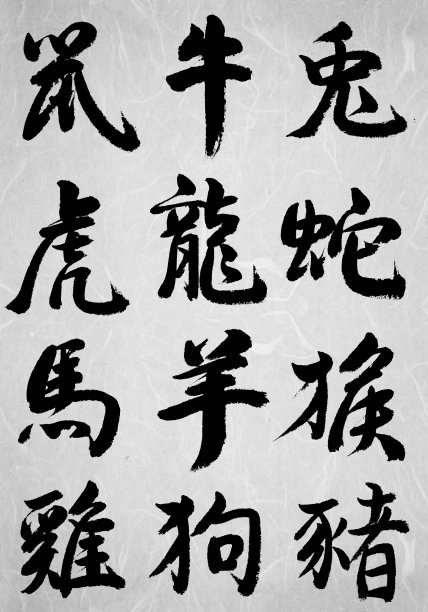 鼠牛兔
虎龍蛇
馬羊猴
雞狗豬